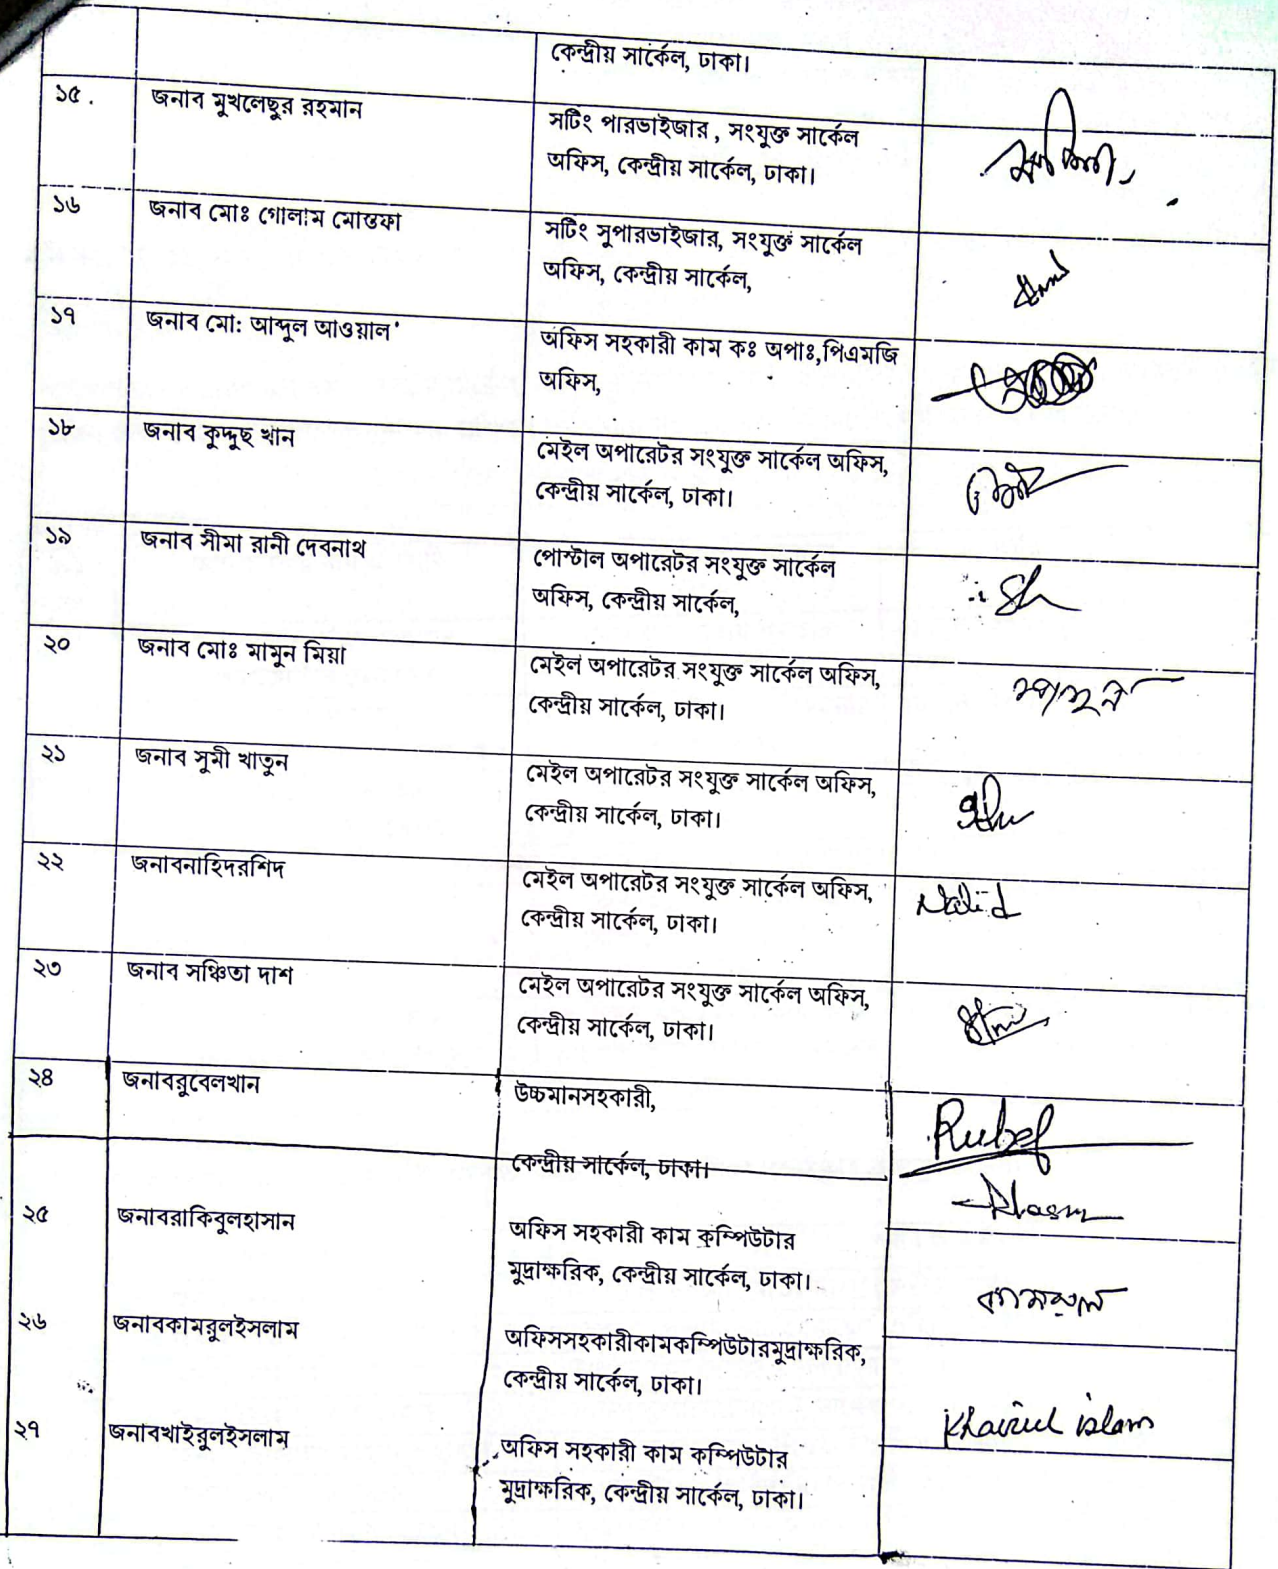 কেন্দ্রীয় সার্কেল, ঢাকা।
১৫. জনাব মুখলেছুর রহমান
সটিং পারভাইজার, সংযুক্ত সার্কেল
অফিস, কেন্দ্রীয় সার্কেল, ঢাকা।
১৬ জনাব মোঃ গোলাম মোস্তফা
সটিং সুপারভাইজার, সংযুক্ত সার্কেল
অফিস, কেন্দ্রীয় সার্কেল,
১৭ জনাব মো: আব্দুল আওয়াল
অফিস সহকারী কাম কঃ অপাঃ,পিএমজি
অফিস,
১৮ জনাব কুদ্দুছ খান
মেইল অপারেটর সংযুক্ত সার্কেল অফিস,
কেন্দ্রীয় সার্কেল, ঢাকা।
১৯ জনাব সীমা রানী দেবনাথ
পোস্টাল অপারেটর সংযুক্ত সার্কেল
অফিস, কেন্দ্রীয় সার্কেল,
২০ জনাব মোঃ মামুন মিয়া
মেইল অপারেটর সংযুক্ত সার্কেল অফিস,
কেন্দ্রীয় সার্কেল, ঢাকা।
মামুন
২১ জনাব সুমী খাতুন
মেইল অপারেটর সংযুক্ত সার্কেল অফিস,
কেন্দ্রীয় সার্কেল, ঢাকা।
২২ জনাবনাহিদরশিদ
মেইল অপারেটর সংযুক্ত সার্কেল অফিস,
কেন্দ্রীয় সার্কেল, ঢাকা।
Nahid
২৩ জনাব সঞ্চিতা দাশ
মেইল অপারেটর সংযুক্ত সার্কেল অফিস,
কেন্দ্রীয় সার্কেল, ঢাকা।
২৪ জনাবরুবেলখান
উচ্চমানসহকারী,
কেন্দ্রীয় সার্কেল, ঢাকা।
Rubel
২৫ জনাবরাকিবুলহাসান
অফিস সহকারী কাম কম্পিউটার
মুদ্রাক্ষরিক, কেন্দ্রীয় সার্কেল, ঢাকা।
২৬ জনাবকামরুলইসলাম
অফিসসহকারীকামকম্পিউটারমুদ্রাক্ষরিক,
কেন্দ্রীয় সার্কেল, ঢাকা।
কামরুল
২৭ জনাবখাইরুলইসলাম
অফিস সহকারী কাম কম্পিউটার
মুদ্রাক্ষরিক, কেন্দ্রীয় সার্কেল, ঢাকা।
Khairul islam